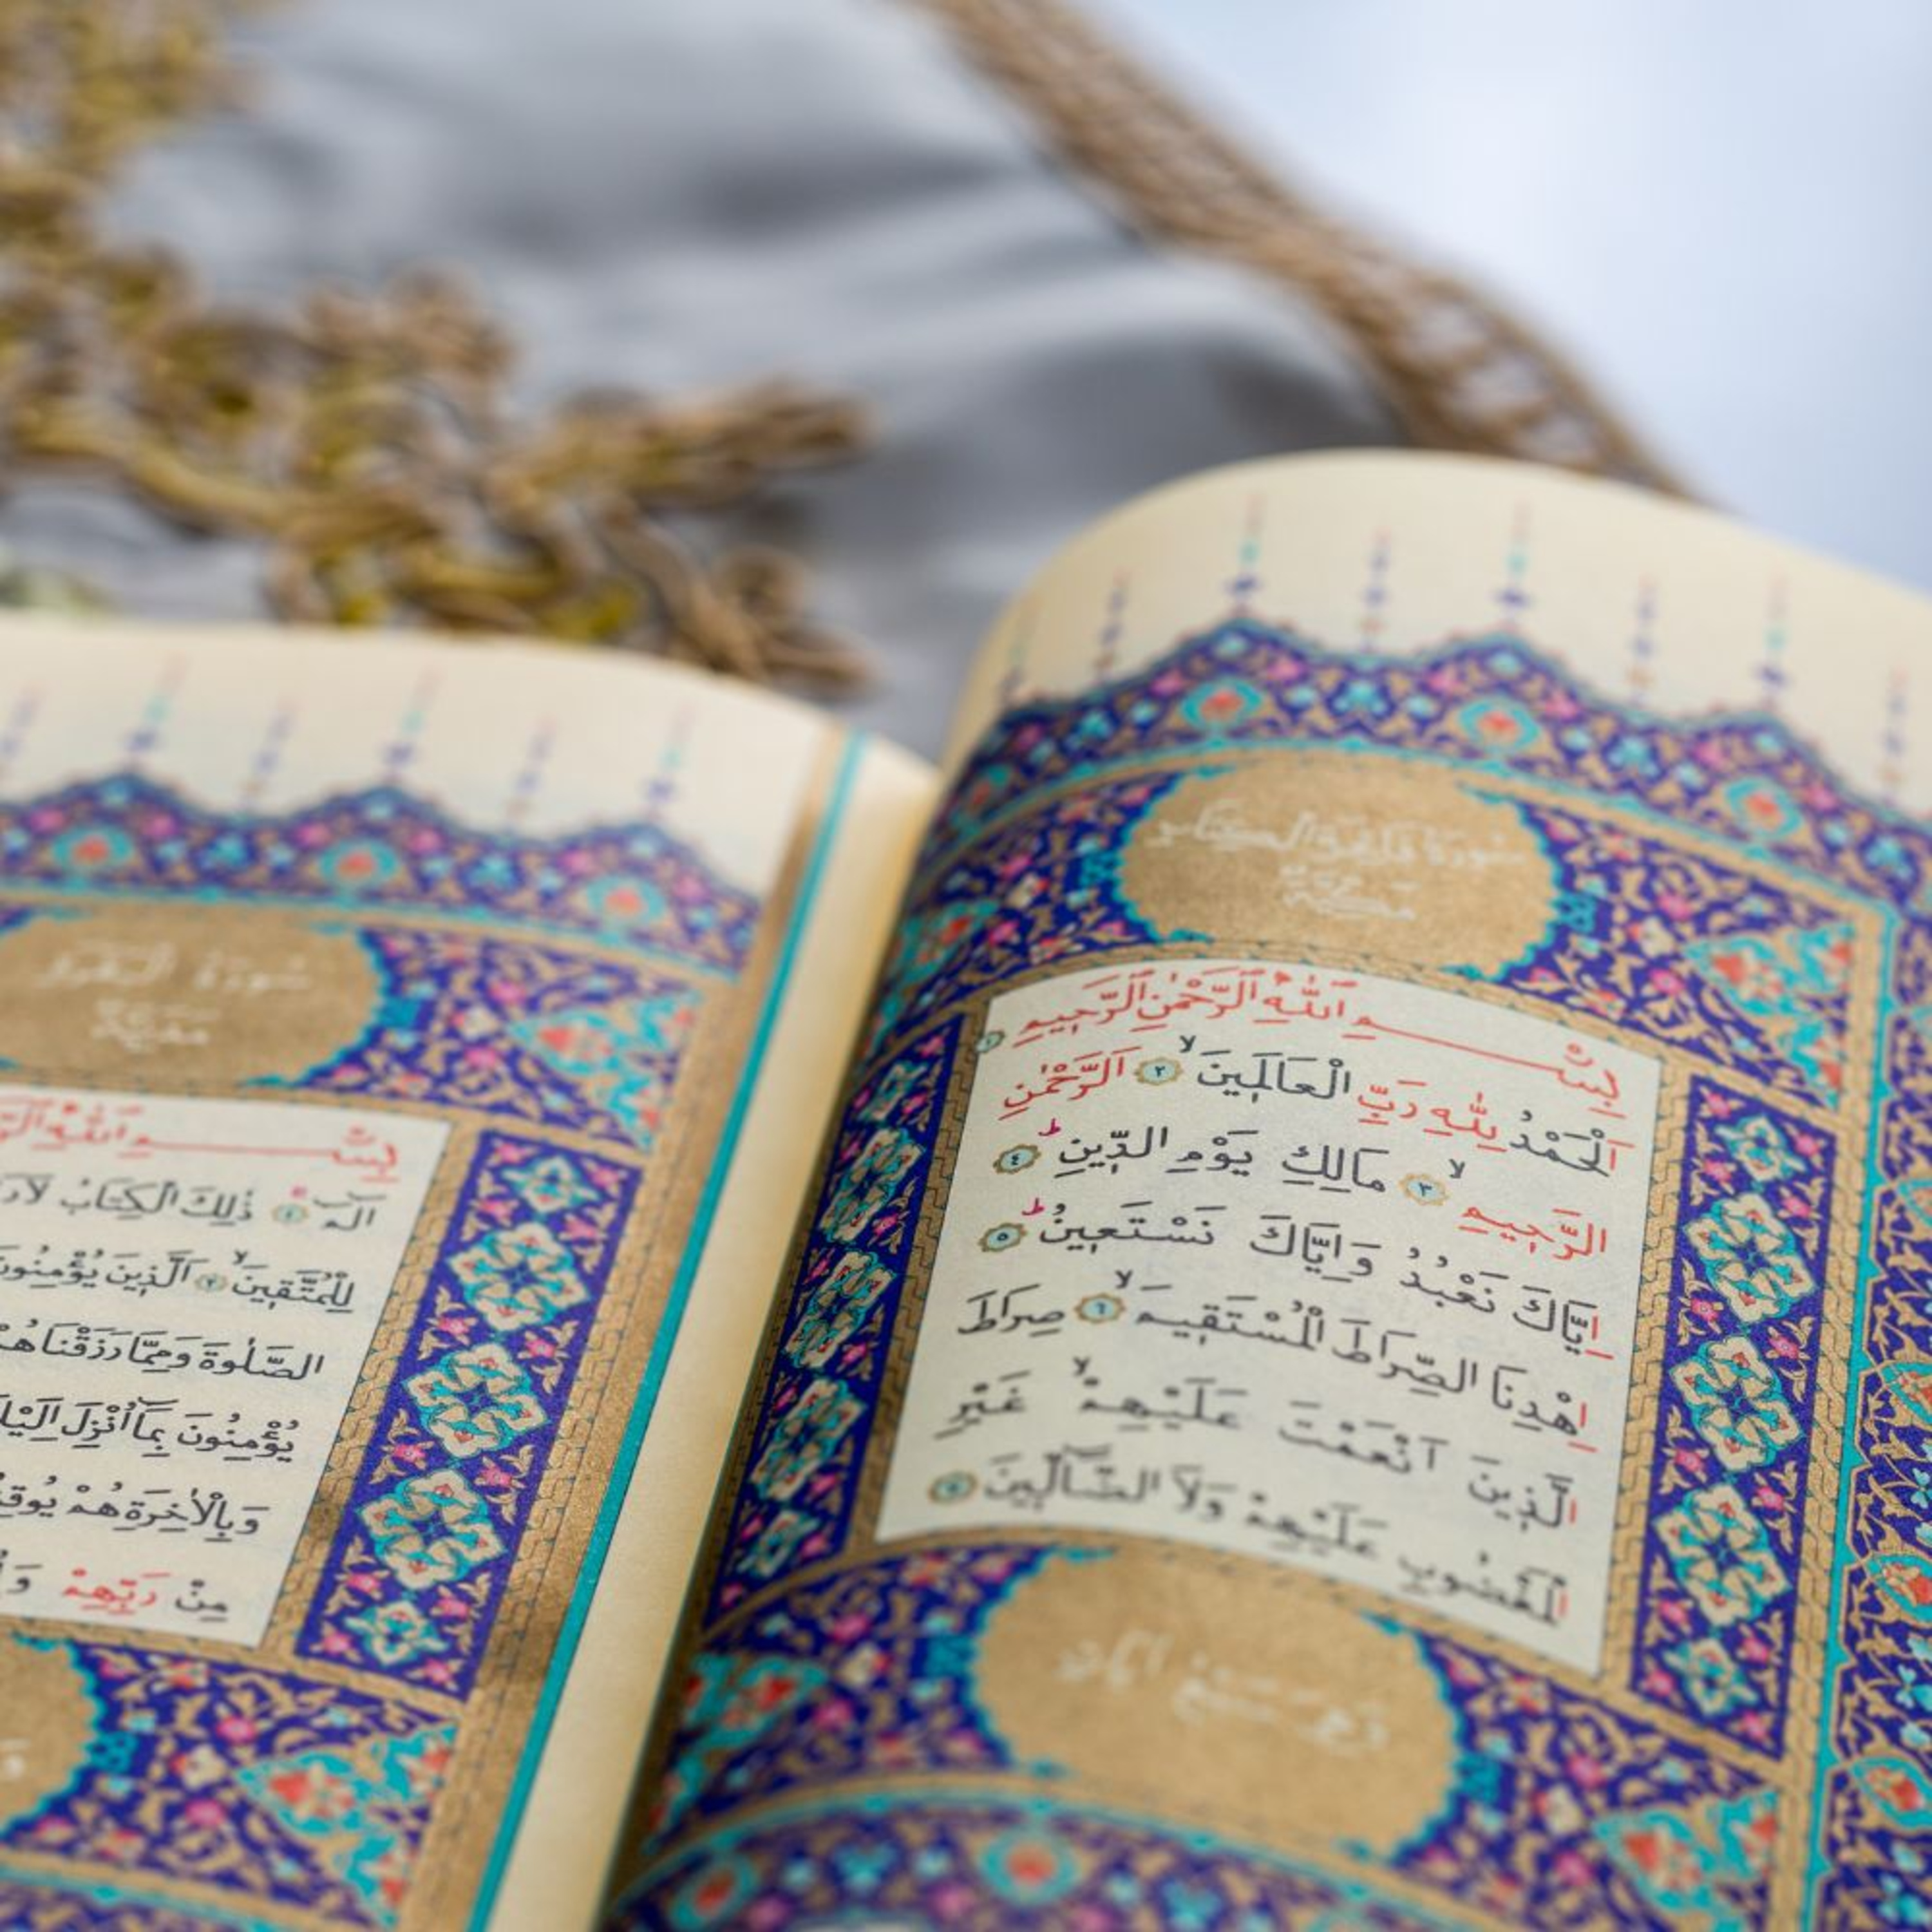 سُورَةُ فَاتِحَةِ الْكِتَابِ
مَكِّيَّةٌ
بِسْمِ اللّٰهِ الرَّحْمٰنِ الرَّحِيمِ ١
اَلْحَمْدُ لِلّٰهِ رَبِّ الْعَالَمِينَ ۙ ٢ اَلرَّحْمٰنِ
الرَّحِيمِ ۙ ٣ مَالِكِ يَوْمِ الدِّينِ ۜ ٤
اِيَّاكَ نَعْبُدُ وَاِيَّاكَ نَسْتَعِينُ ۜ ٥
اِهْدِنَا الصِّرَاطَ الْمُسْتَقِيمَ ۙ ٦ صِرَاطَ
الَّذِينَ اَنْعَمْتَ عَلَيْهِمْ ۙ غَيْرِ
الْمَغْضُوبِ عَلَيْهِمْ وَلَا الضَّٓالِّينَ ٧
سُورَةُ الْبَقَرَةِ
مَدَنِيَّةٌ
بِسْمِ اللّٰهِ
الٓمٓ ۚ ١ ذٰلِكَ الْكِتَابُ لَا
لِلْمُتَّقِينَ ۙ ٢ اَلَّذِينَ يُؤْمِنُونَ
الصَّلٰوةَ وَمِمَّا رَزَقْنَاهُمْ
يُؤْمِنُونَ بِمَٓا اُنْزِلَ
وَبِالْاٰخِرَةِ هُمْ
مِنْ رَبِّهِمْ